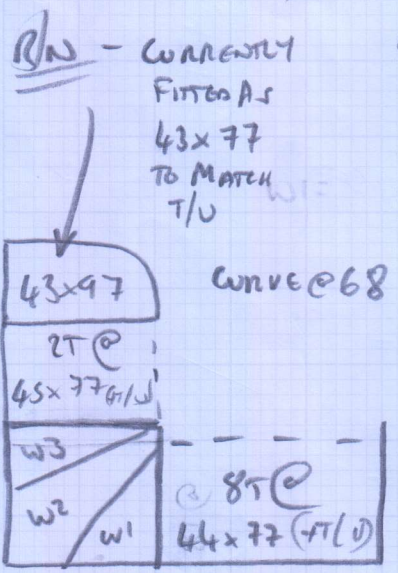 B/N - CURRENTLY
FITTED AS
43x77
TO MATCH
T/U
43x97
CURVE @ 68
2T @
45x77 (+T/U)
W3
W2
W1
8T @
44x77 (+T/U)